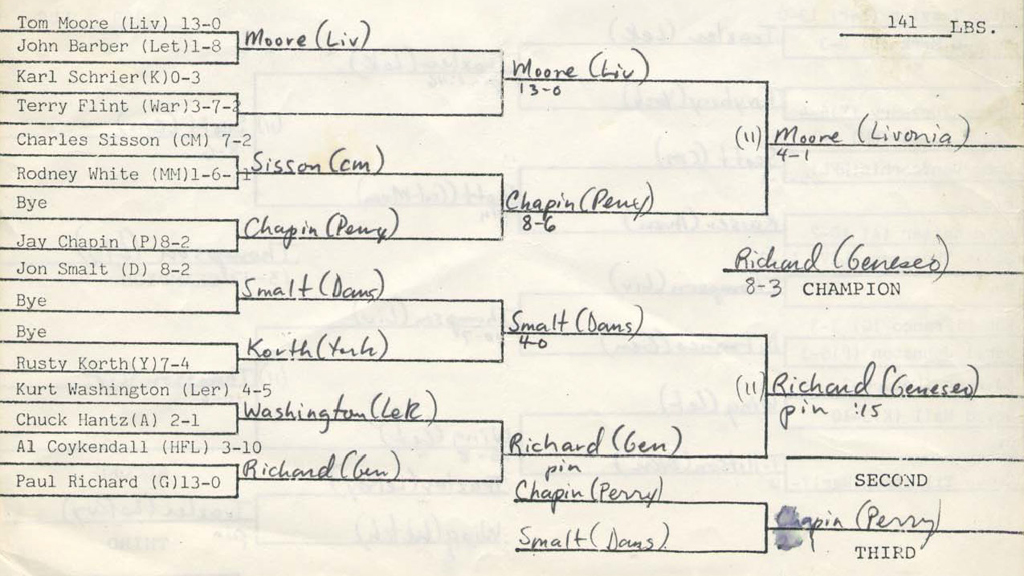 141 LBS.
Tom Moore (Liv) 13-0
John Barber (Let)1-8
Karl Schrier(K)0-3
Terry Flint (War)3-7-2
Charles Sisson (CM) 7-2
Rodney White (MM)1-6-1
Bye
Jay Chapin (P)8-2
Jon Smalt (D) 8-2
Bye
Bye
Rusty Korth(Y)7-4
Kurt Washington (Ler) 4-5
Chuck Hantz(A) 2-1
Al Coykendall (HFL) 3-10
Paul Richard (G)13-0
Moore (Liv)
Sisson (cm)
Chapin (Perry)
Smalt (Dans)
Korth (York)
Washington (LeR)
Richard (Gen)
Moore (Liv)
13-0
Chapin (Perry)
8-6
Smalt (Dans)
4-0
Richard (Gen)
pin
(11) Moore (Livonia)
4-1
(11) Richard (Geneseo)
pin :15
Richard (Geneseo)
8-3 CHAMPION
SECOND
Chapin (Perry)
Smalt (Dans)
Chapin (Perry)
THIRD